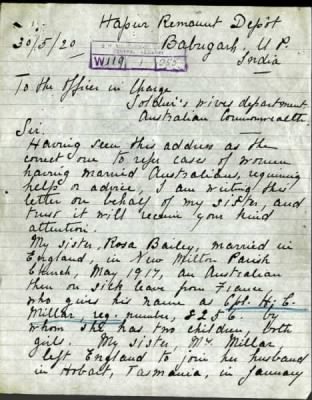 Hapur Remount Depôt
30/5/20 Babugarh, U.P.
India
W119 1 255
To the Officer in Charge
Soldier's wives department
Australian Commonwealth.
Sir.
Having seen this address as the
correct one to refer cases of women
having married Australians, requiring
help or advice, I am writing this
letter on behalf of my sister, and
trust it will receive your kind
attention.
My sister, Rosa Bailey, married in
England, in New Milton Parish
Church, May 1917, an Australian
then on sick leave from France
who gives his name as Cpl. H. C.
Millar, reg. number, 825 C. by
whom she has two children, both
girls. My sister, Mrs Millar,
left England to join her husband
in Hobart, Tasmania, in January